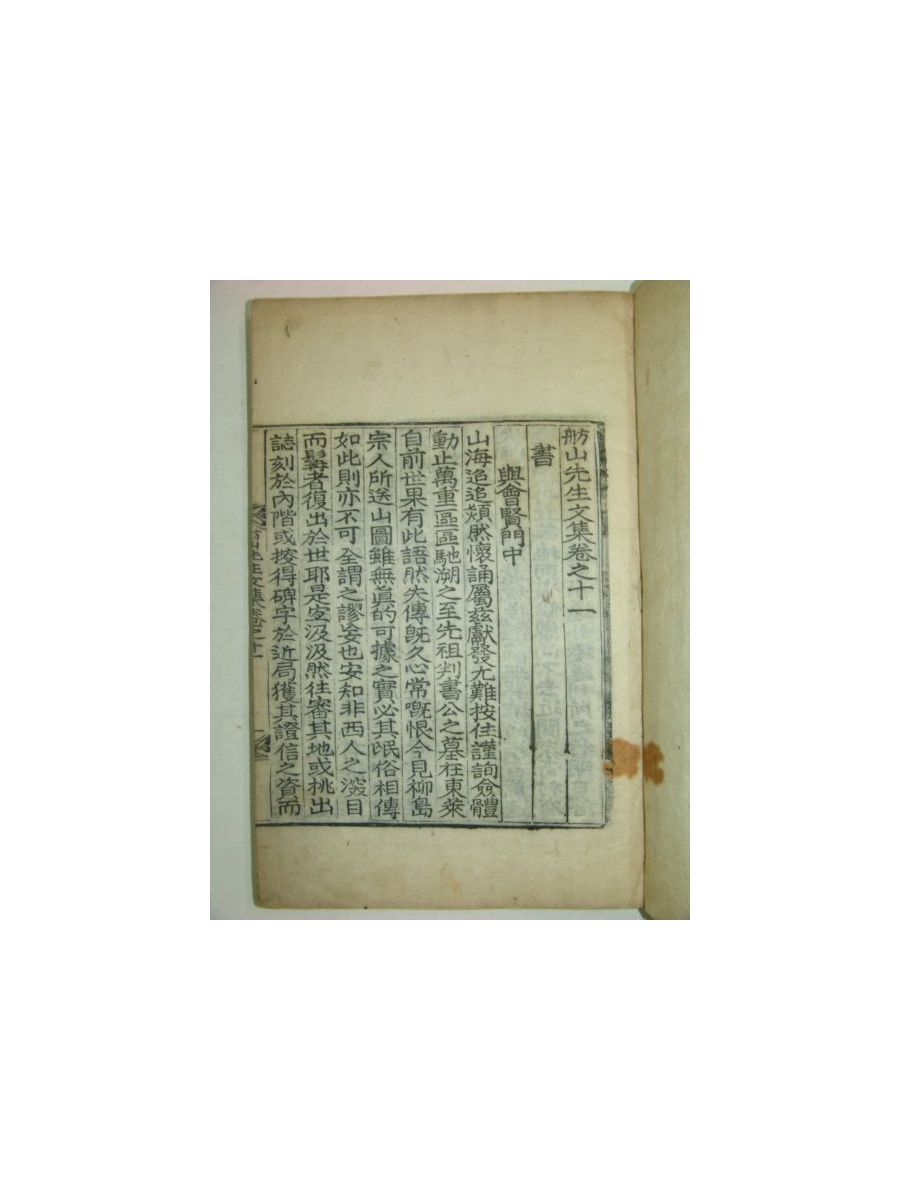 舫山先生文集卷之十一
書
與會賢門中
山海迢迢頹然懷誦屬玆獻發尤難按住謹詢僉體
動止萬重區區馳溯之至先祖判書公之墓在東萊
自前世果有此語然失傳旣久心常慨恨今見柳島
宗人所送山圖雖無眞的可據之實必其氓俗相傳
如此則亦不可全謂之謬妄也安知非西人之深目
而鬈者復出於世耶是宜汲汲然往審其地或挑出
誌刻於內階或按得碑字於近局獲其證信之資而
舫山先生文集卷之十一
一